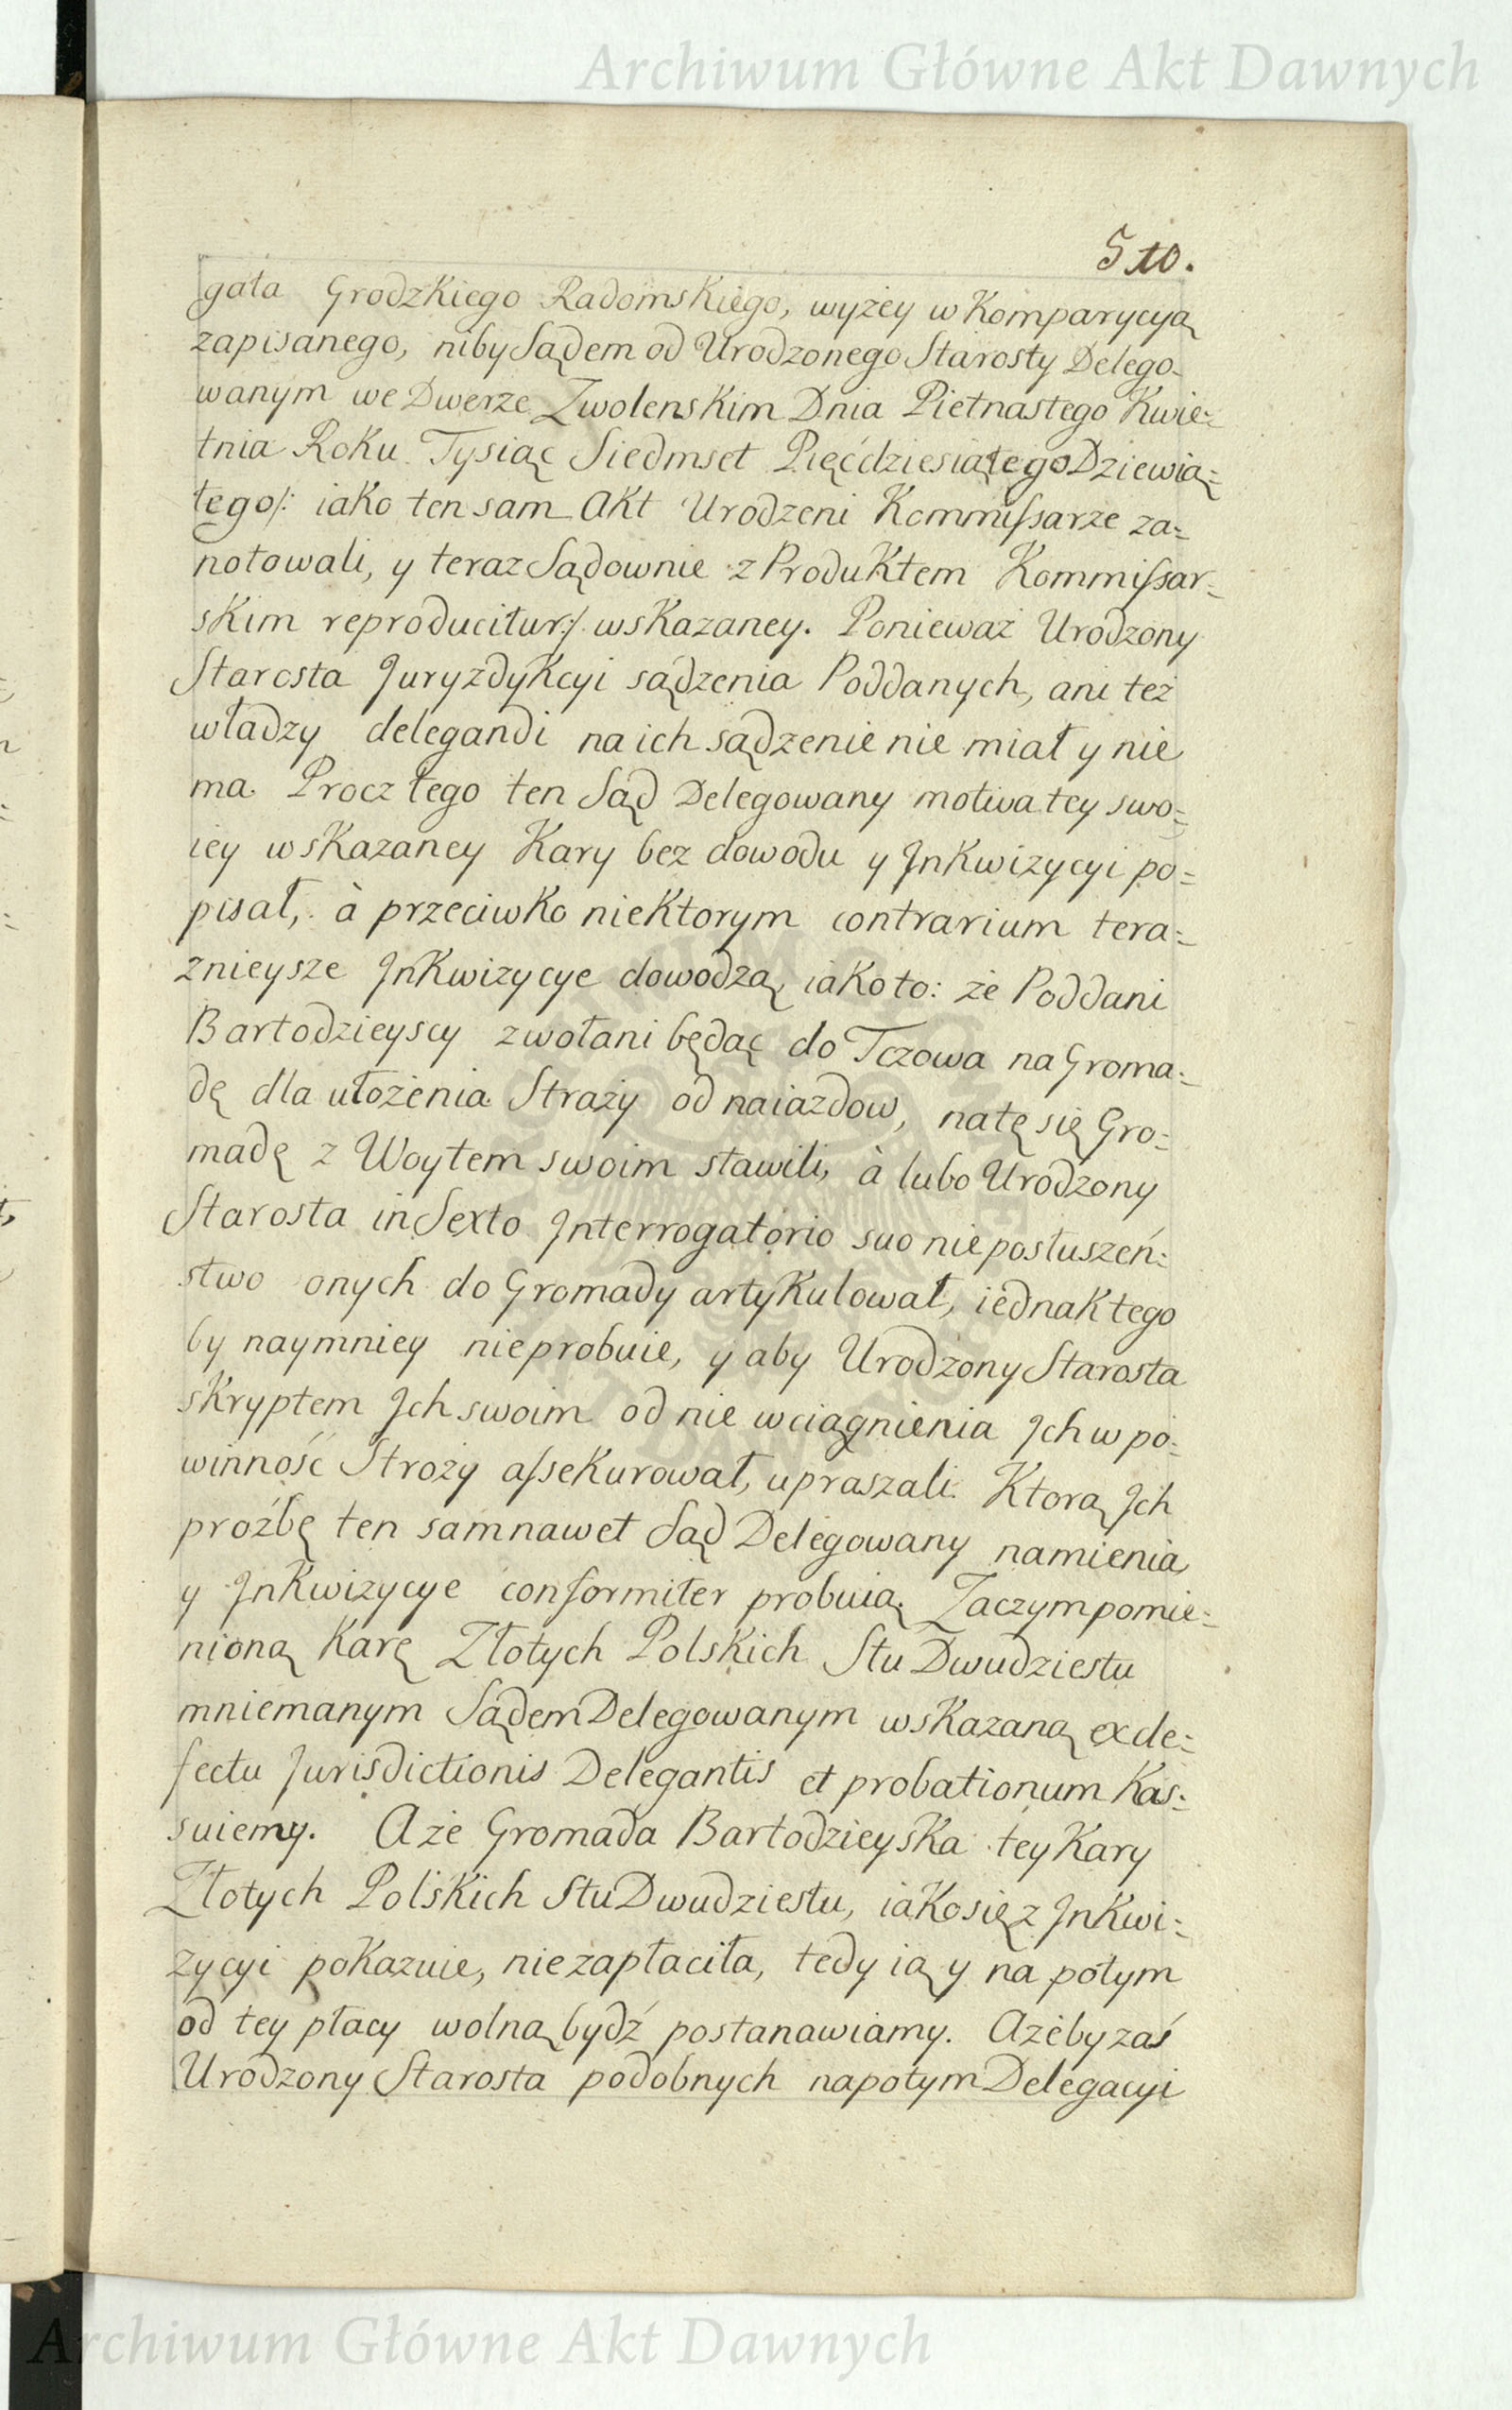 Archiwum Główne Akt Dawnych
510.
gata Grodzkiego Radomskiego, wyżey w Komparycyą
zapisanego, niby Sądem od Urodzonego Starosty Delego-
wanym we Dwerze Zwolenskim Dnia Pietnastego Kwie=
tnia Roku Tysiąc Siedmset Pięćdziesiątego Dziewią=
tego/: iako ten sam Akt Urodzeni Kommissarze za=
notowali, y teraz Sądownie z Produktem Kommissar=
skim reproducitur:/ wskazaney. Ponieważ Urodzony
Starosta Juryzdykcyi sądzenia Poddanych, ani też
władzy delegandi na ich sądzenie nie miał y nie
ma. Procz tego ten Sąd Delegowany motiva tey swo=
iey wskazaney Kary bez dowodu y Jnkwizycyi po=
pisał, à przeciwko niektorym contrarium tera=
znieysze Jnkwizycye dowodzą, iako to: że Poddani
Bartodzieyscy zwołani będąc do Tczowa na Groma=
dę dla ułożenia Straży od naiazdow, na tę się Gro=
madę z Woytem swoim stawili, à lubo Urodzony
Starosta in Sexto Jnterrogatorio suo nieposłuszeń=
stwo onych do Gromady artykulował, iednak tego
by naymniey nie probuie, y aby Urodzony Starosta
skryptem Jch swoim od nie wciągnienia Jch w po=
winność Stroży assekurował, upraszali. Ktorą Jch
proźbę ten sam nawet Sąd Delegowany namienia,
y Jnkwizycye conformiter probuią. Zaczym pomie=
nioną Karę Złotych Polskich Stu Dwudziestu
mniemanym Sądem Delegowanym wskazaną ex de=
fectu Jurisdictionis Delegantis et probationum Kas=
suiemy. A że Gromada Bartodzieyska tey Kary
Złotych Polskich Stu Dwudziestu, iako się z Jnkwi=
zycyi pokazuie, nie zapłaciła, tedy ią y na potym
od tey płacy wolną bydź postanawiamy. Ażeby zaś
Urodzony Starosta podobnych napotym Delegacyi
Archiwum Główne Akt Dawnych